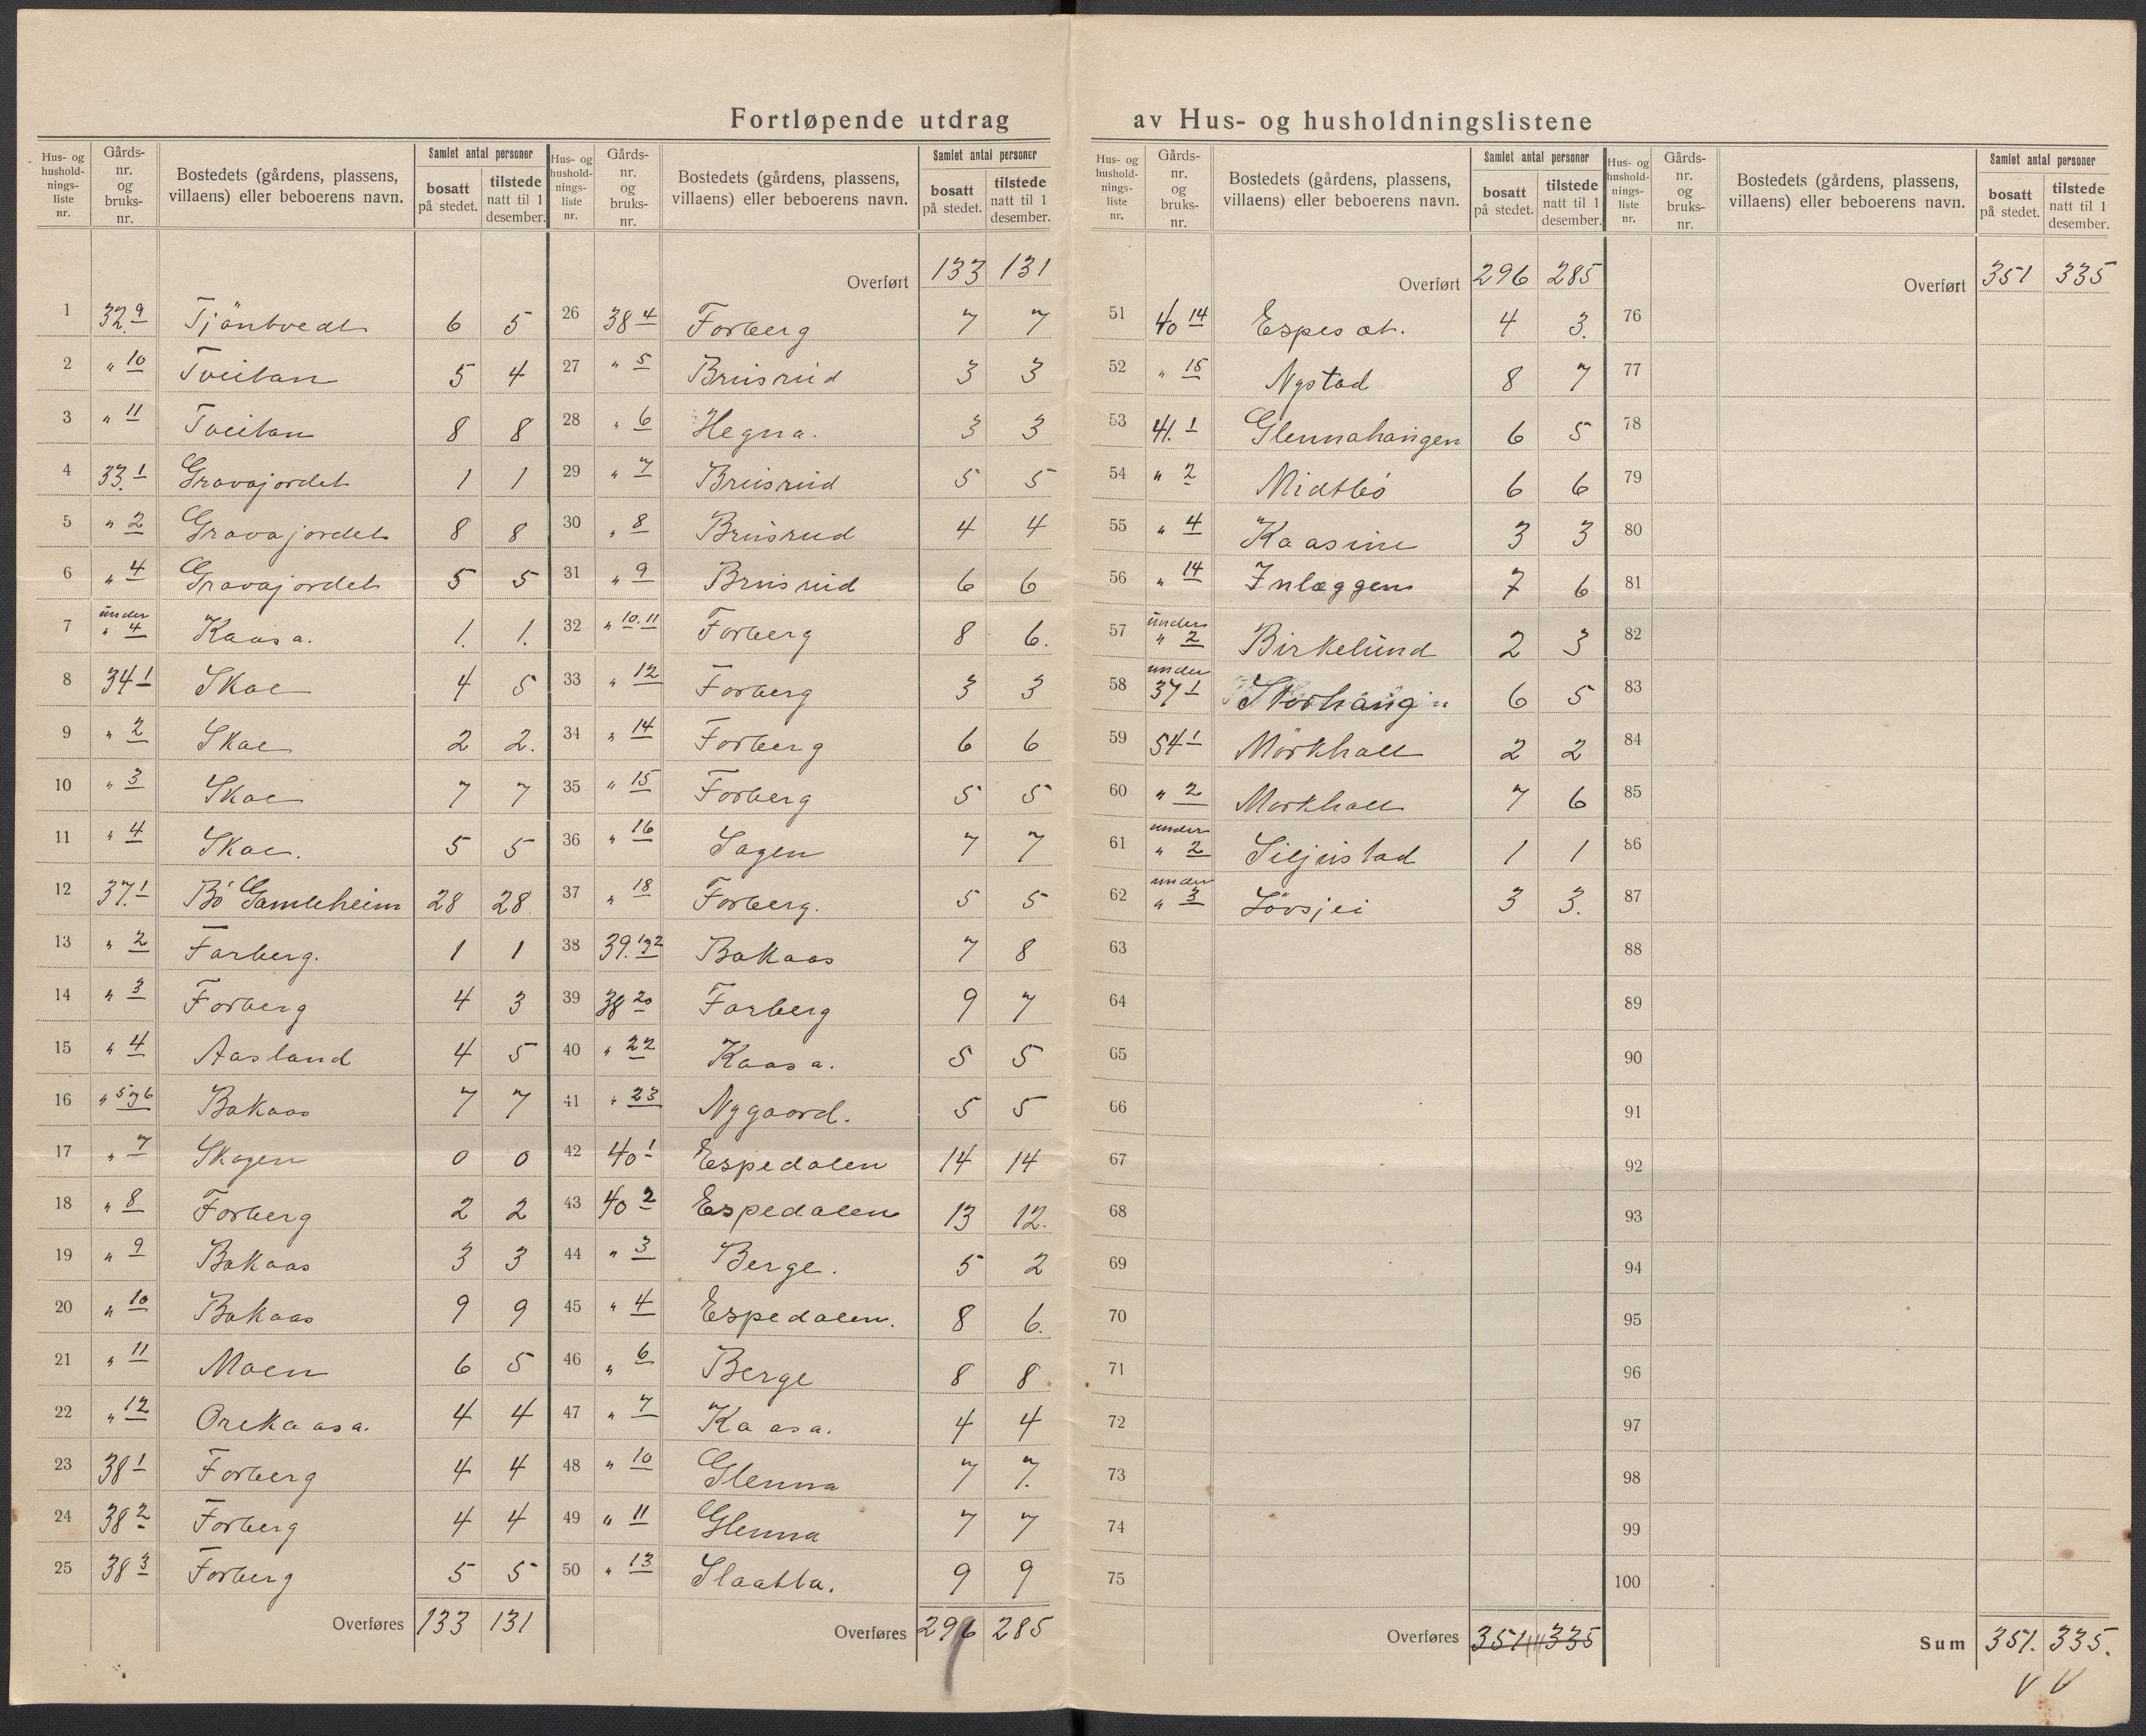 Fortløpende utdrag av Hus- og husholdningslistene
Hus- og hushold-nings-liste nr. | Gårds-nr. og bruks-nr. | Bostedets (gårdens, plassens, villaens) eller beboerens navn. | Samlet antal personer | bosatt på stedet. | tilstede natt til 1 desember.
1 32.9 Tjöntvedt 6 5
2 " 10 Tveitan 5 4
3 " 11 Tveitan 8 8
4 33.1 Gravajordet 1 1
5 " 2 Gravajordet 8 8
6 " 4 Gravajordet 5 5
7 under " 4 Kaasa. 1. 1.
8 34 1 Skoe 4 5
9 " 2 Skoe 2 2.
10 " 3 Skoe 7 7
11 " 4 Skoe. 5 5
12 37.1 Bö Gamleheim 28 28.
13 " 2 Forberg. 1 1
14 " 3 Forberg 4 3
15 " 4 Aasland 4 5
16 " 5 og 6 Bakaas 7 7
17 " 7 Skogen 0 0
18 " 8 Forberg 2 2
19 " 9 Bakaas 3 3
20 " 10 Bakaas 9 9
21 " 11 Moen 6 5
22 " 12 Orekaasa. 4 4
23 38 1 Forberg 4 4
24 38 2 Forberg 4 4
25 38 3 Forberg 5 5
Overføres 133 131
Hus- og hushold-nings-liste nr. | Gårds-nr. og bruks-nr. | Bostedets (gårdens, plassens, villaens) eller beboerens navn. | Samlet antal personer | bosatt på stedet. | tilstede natt til 1 desember.
Overført 133 131
26 38 4 Forberg 7 7
27 " 5 Brusrud 3 3
28 " 6 Hegna. 3 3
29 " 7 Brusrud 5 5
30 " 8 Brusrud 4 4
31 " 9 Brusrud 6 6
32 " 10.11 Forberg 8 6.
33 " 12 Forberg 3 3
34 " 14 Forberg 6 6
35 " 15 Forberg 5 5
36 " 16 Sagen 7 7
37 " 18 Forberg. 5 5
38 39. 1 og 2 Bakaas 7 8
39 38 20 Forberg 9 7
40 " 22 Kaasa. 5 5
41 " 23 Nygaard. 5 5
42 40 1 Espedalen 14 14
43 40 2 Espedalen 13 12.
44 " 3 Berge. 5 2
45 " 4 Espedalen. 8 6.
46 " 6 Berge 8 8
47 " 7 Kaasa. 4 4
48 " 10 Glenna 7 7.
49 " 11 Glenna 7 7
50 " 13 Slaatta. 9 9
Overføres 296 285
Hus- og hushold-nings-liste nr. | Gårds-nr. og bruks-nr. | Bostedets (gårdens, plassens, villaens) eller beboerens navn. | Samlet antal personer | bosatt på stedet. | tilstede natt til 1 desember.
Overført 296 285
51 40 14 Espesæt. 4 3.
52 " 15 Nystad 8 7
53 41.1 Glennahaugen 6 5
54 " 2 Midtbö 6 6
55 " 4 Kaasine 3 3
56 " 14 Inlæggen 7 6
57 under " 2 Birkelund 2 3
58 under 37 1 6 5
59 54 1 Mörkhall 2 2
60 " 2 Mörkhall 7 6
61 under " 2 Siljustad 1 1
62 under " 3 Lövsjei 3 3.
63
64
65
66
67
68
69
70
71
72
73
74
75
Overføres 351 335
Hus- og hushold-nings-liste nr. | Gårds-nr. og bruks-nr. | Bostedets (gårdens, plassens, villaens) eller beboerens navn. | Samlet antal personer | bosatt på stedet. | tilstede natt til 1 desember.
Overført 351 335
76
77
78
79
80
81
82
83
84
85
86
87
88
89
90
91
92
93
94
95
96
97
98
99
100
Sum 351. 335.
V V